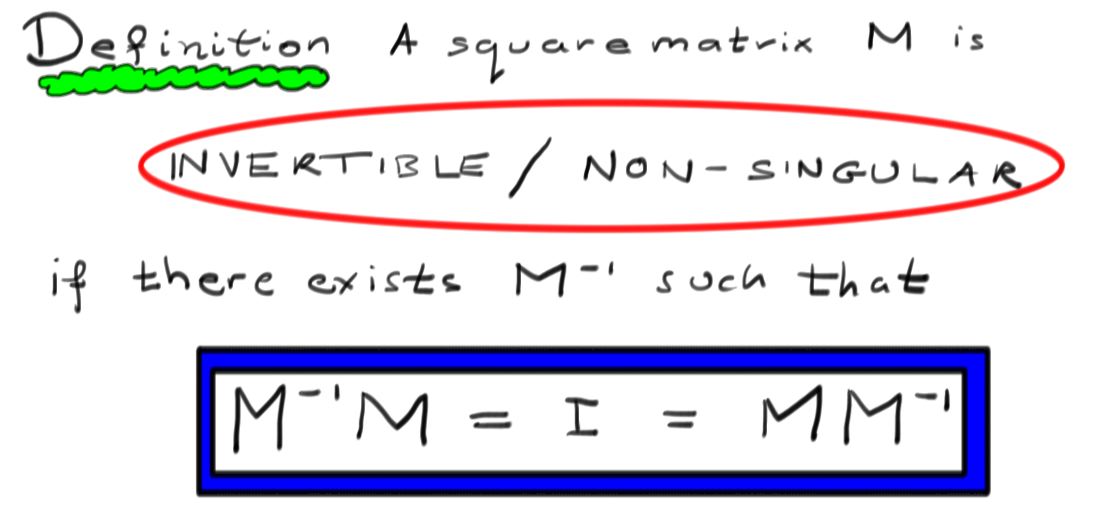 Definition A square matrix M is
INVERTIBLE / NON-SINGULAR
if there exists M⁻¹ such that
M⁻¹M = I = MM⁻¹